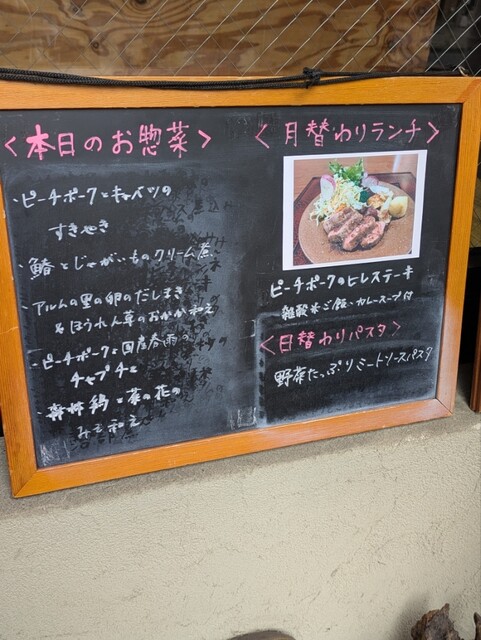 〈本日のお惣菜〉
・ピーチポークとキャベツの
すきやき
・鰆とじゃがいものクリーム煮
・アルムの里の卵のだしまき
&ほうれん草のおかか和え
・ピーチポークと国産春雨の
チャプチェ
・森林鶏と菜の花の
みそ和え
〈月替わりランチ〉
ピーチポークのヒレステーキ
雑穀米ご飯・カレースープ付
〈日替わりパスタ〉
野菜たっぷりミートソースパスタ